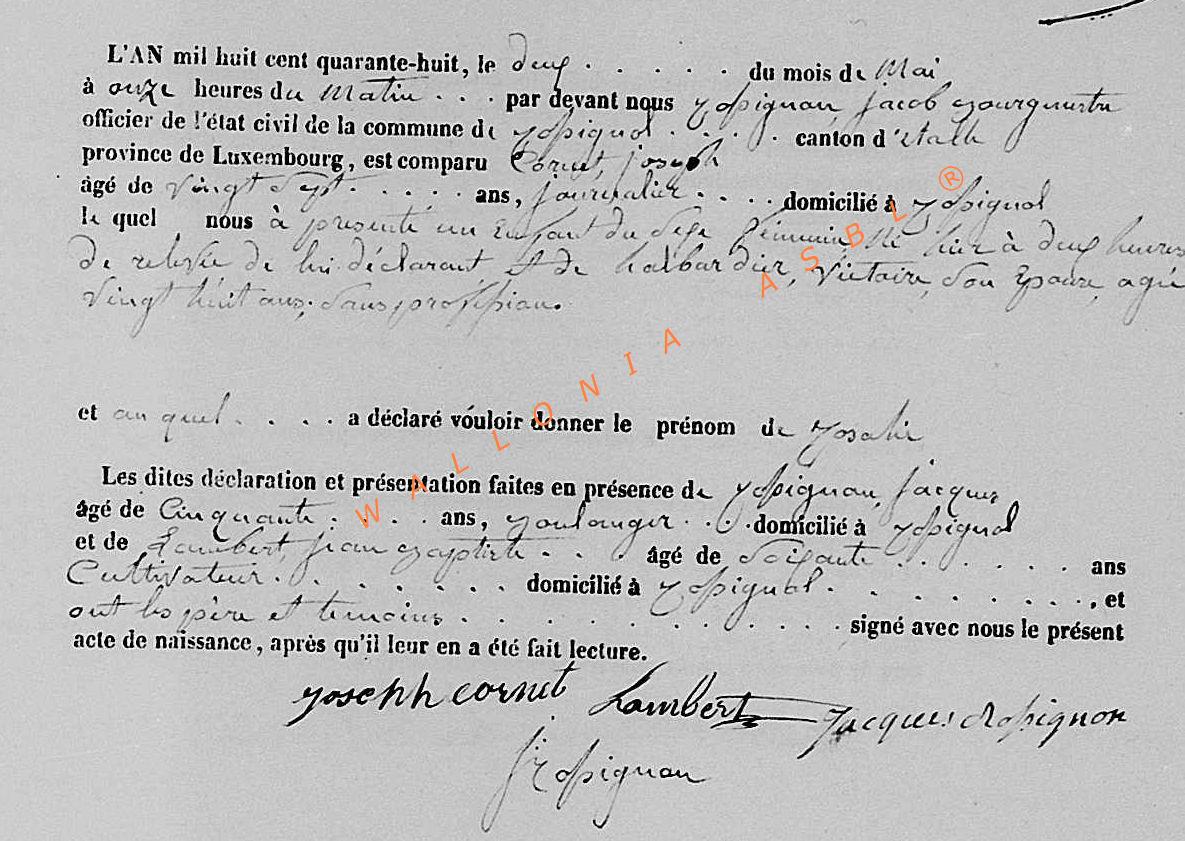 L'AN mil huit cent quarante-huit, le deux . . . . . du mois de Mai
à onze heures du Matin . . . par devant nous Rossignon, Jacob Bourgmestre
officier de l'état civil de la commune de Rossignol . . . . canton d'Etalle
province de Luxembourg, est comparu Cornet, Joseph
âgé de vingt Sept . . . . . ans, Journalier . . . . domicilié à Rossignol
le quel nous à présenté un Enfant du Sexe féminin, né hier à deux heures
de relevée de lui déclarant, et de halbardier, Victoire, Son Epouse, agée
vingt huit ans, Sans profession.
et au quel . . . . a déclaré vouloir donner le prénom de Rosalie
Les dites déclaration et présentation faites en présence de Rossignon, Jacques
âgé de Cinquante . . . . ans, Boulanger . . . . domicilié à Rossignol
et de Lambert, Jean Baptiste . . . âgé de Soixante . . . . . . ans
Cultivateur . . . . . . . domicilié à Rossignol . . . . . . . . , et
ont les père et temoins . . . . . . . . . . . . signé avec nous le présent
acte de naissance, après qu'il leur en a été fait lecture.
Joseph Cornet Lambert Jacques Rossignon
J Rossignon
WALLONIA ASBL ®